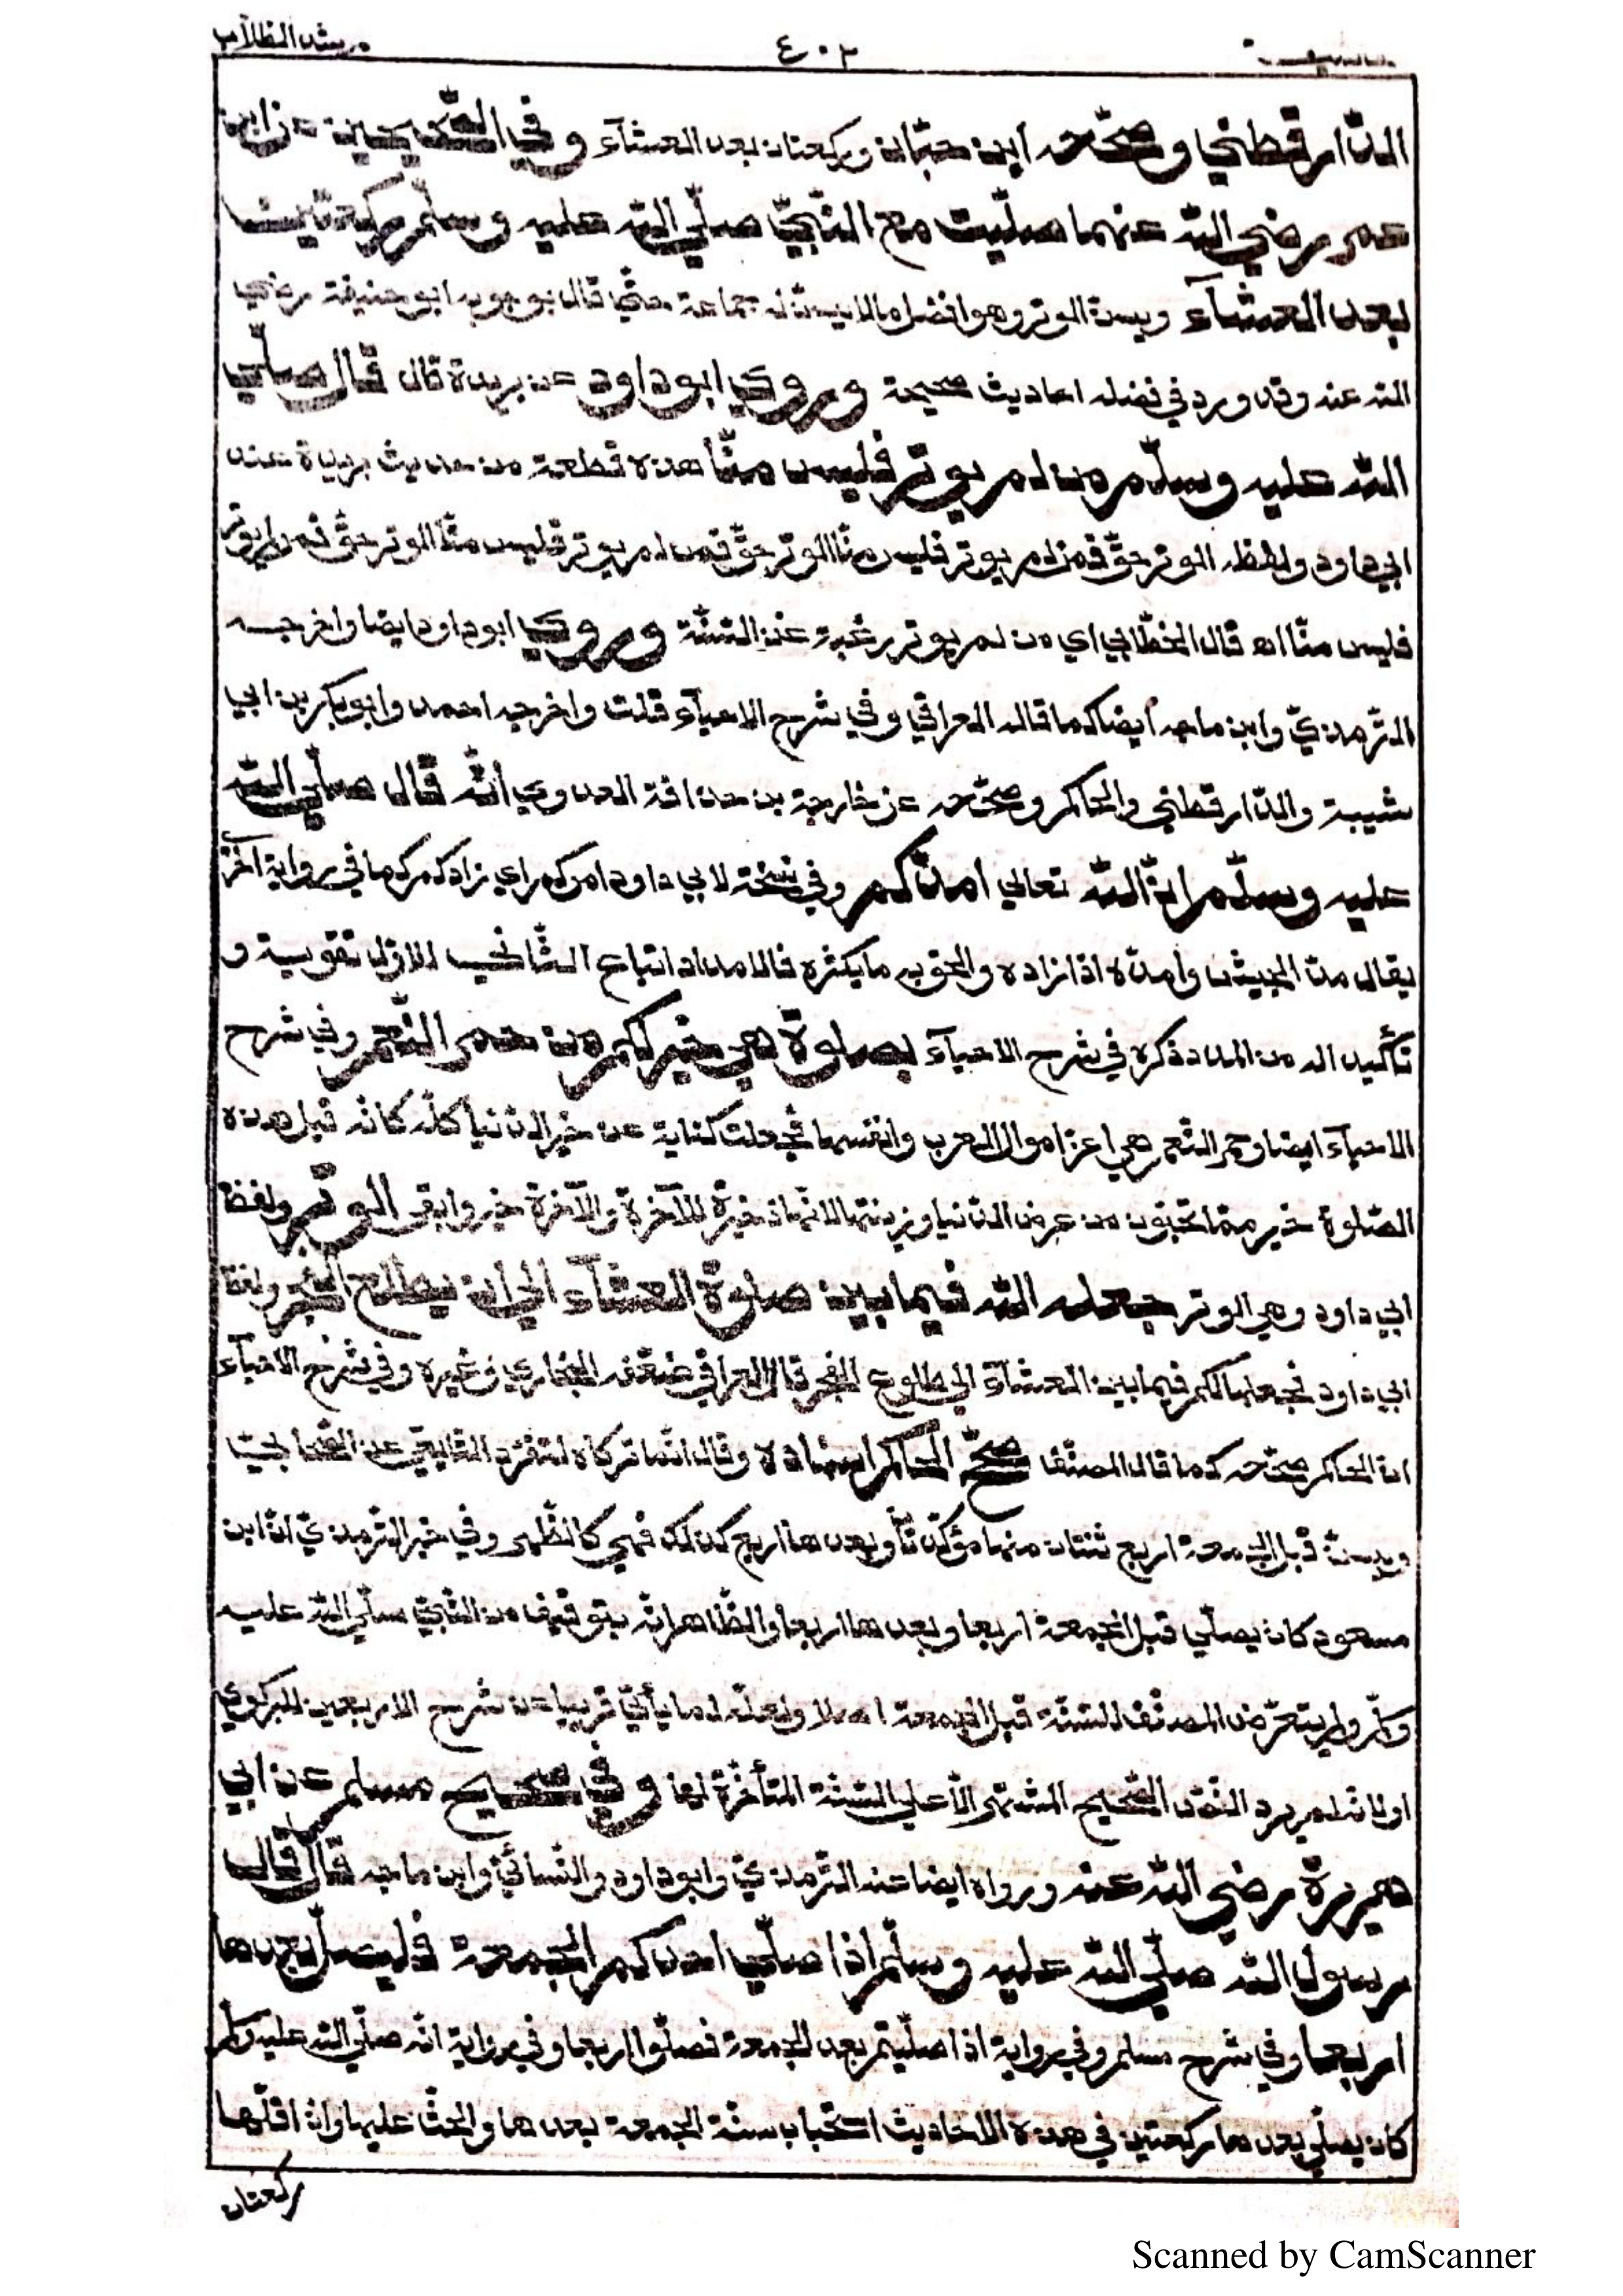 مرشد الطلاب ٤٠٢
الدّارقطني وصحّحه ابن حبّان وركعتان بعد العشآء وفي الصّحيحين عن ابن
عمر رضي اللّه عنهما صلّيت مع النّبيّ صلّي اللّه عليه وسلّم ركعتين
بعد العشآء ويسنّ الوتر وهو افضل مالا يسنّ له جماعة حتّي قال بوجوبه ابو حنيفة رضي
اللّه عنه وقد ورد في فضله احاديث صحيحة وروي ابو داود عن بريدة قال قال صلّي
اللّه عليه وسلّم من لم يوتر فليس منّا هذه قطعة من حديث بريدة عند
ابي داود ولفظه الوتر حقّ فمن لم يوتر فليس منّا الوتر حقّ فمن لم يوتر فليس منّا الوتر حقّ فمن لم يوتر
فليس منّا اه قال الخطّابي اي من لم يوتر رغبة عن السّنّة وروي ابو داود ايضا واخرجه
التّرمذيّ وابن ماجه أيضا كما قاله العراقي وفي شرح الاحيآء قلت واخرجه احمد وابو بكر بن ابي
شيبة والدّارقطني والحاكم وصحّحه عن خارجة بن حذافة العدوي أنّه قال صلّي اللّه
عليه وسلّم انّ اللّه تعالي امدّكم وفي نسخة لابي داود امركم اي زادكم كما في رواية آخر
يقال مدّ الجيش وامدّه اذا زاده والحق به ما يكثره فالامداد اتباع الثّاني الاوّل تقوية و
تأكيدا له من المدد ذكره في شرح الاحيآء بصلوة هي خير لكم من حمر النّعم وفي شرح
الاحيآء ايضا وحمر النّعم هي اعزّ اموال العرب وانفسها فجعلت كناية عن خير الدّنيا كلّه كانّه قيل هذه
الصّلوة خير ممّا تحبّون من عرض الدّنيا وزينتها لانّها ذخيرة للآخرة والآخرة خير وابقي الوتر ولفظ
ابي داود وهي الوتر جعله اللّه فيما بين صلوة العشآء الي ان يطلع الفجر ولفظ
ابي داود فجعلها لكم فيما بين العشآء الي طلوع الفجر قال العراقي ضعّفه البخاري وغيره وفي شرح الاحيآء
انّ الحاكم صحّحه كما قال المصنّف صحّح الحاكم اسناده وقال انّما تركاه لتفرّد التّابعيّ عن الصّحابيّ
ويسنّ قبل الجمعة اربع ثنتان منها مؤكّدتان وبعدها اربع كذلك فهي كالظّهر وفي خبر التّرمذيّ انّ ابن
مسعود كان يصلّي قبل الجمعة اربعا وبعدها اربعا والظّاهر انّه بتوقيف من النّبيّ صلّي اللّه عليه
وسلّم ولم يتعرّض المصنّف للسّنّة قبل الجمعة اصلا ولعلّه لما يأتي قريبا عن شرح الاربعين للبركوي
او لانّه لم يرد النّصّ الصّحيح المشتهر الّا علي السّنّة المتأخّرة لها وفي صحيح مسلم عن ابي
هريرة رضي اللّه عنه ورواه ايضا عنه التّرمذيّ وابو داود والنّسائيّ وابن ماجه قال قال
رسول اللّه صلّي اللّه عليه وسلّم اذا صلّي احدكم الجمعة فليصلّ بعدها
اربعا وفي شرح مسلم وفي رواية اذا صلّيتم بعد الجمعة فصلّوا اربعا وفي رواية انّه صلّي اللّه عليه وسلّم
كان يصلّي بعدها ركعتين في هذه الاحاديث استحباب سنّة الجمعة بعدها والحثّ عليها وانّ اقلّها
ركعتان
Scanned by CamScanner